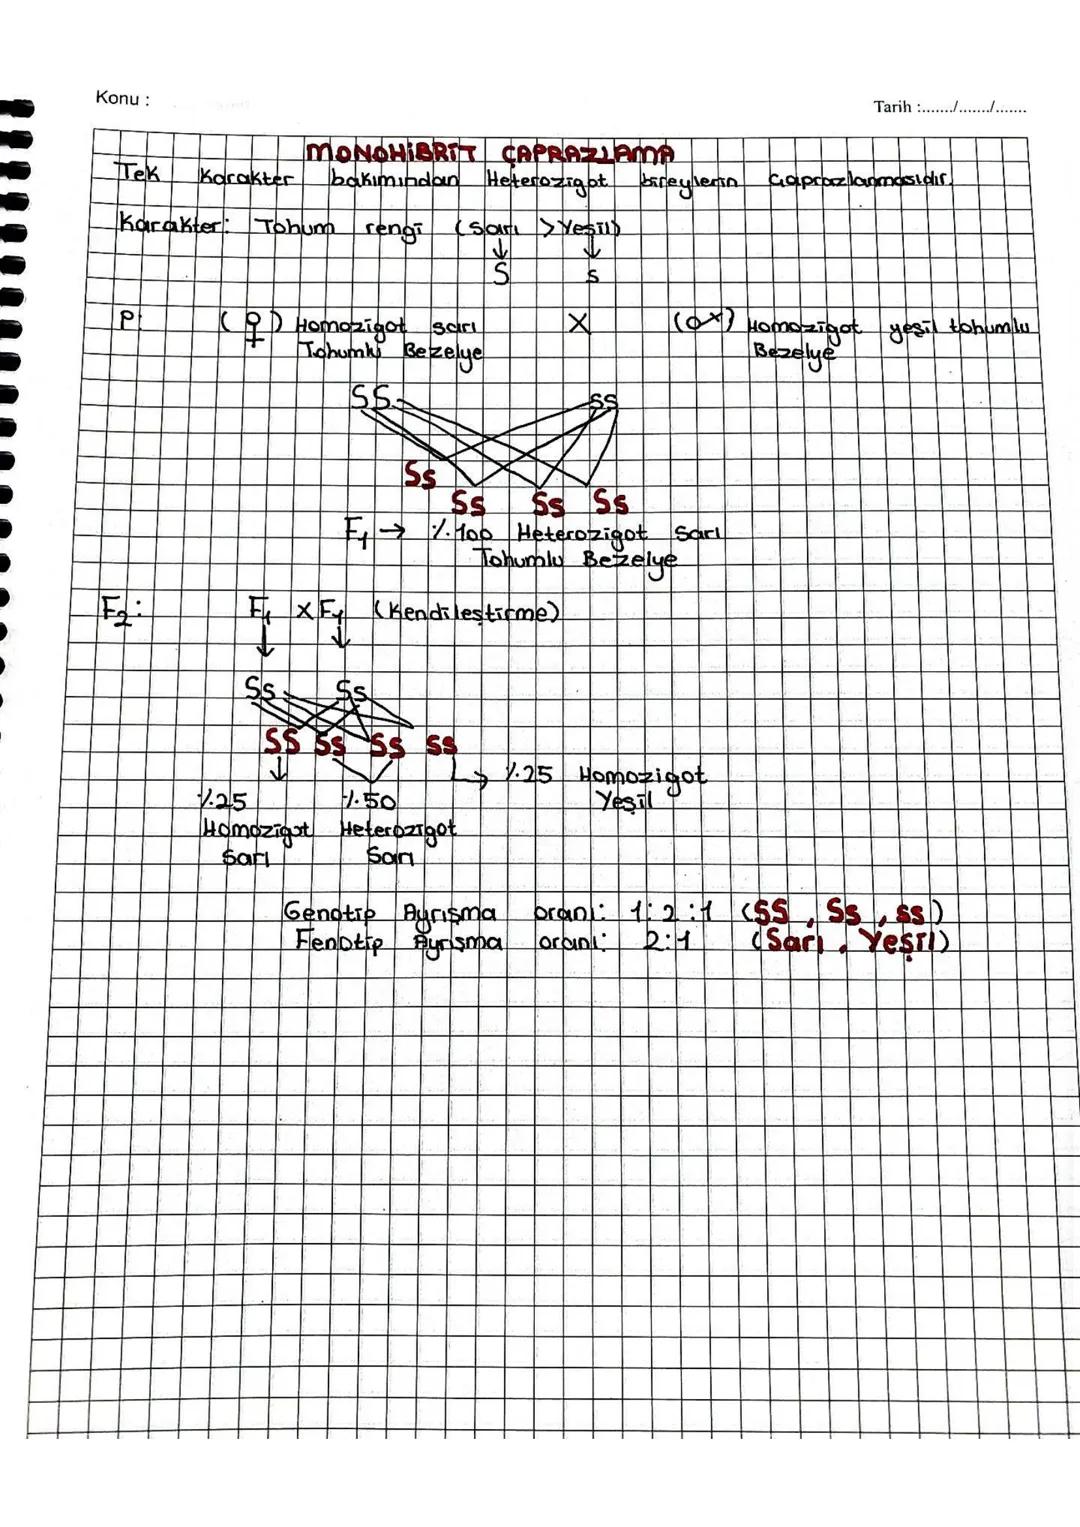 Konu :
Tarih :......./......./.......
MONOHİBRİT ÇAPRAZLAMA
Tek Karakter bakımından Heterozigot bireylerin Çaprazlanmasıdır.
Karakter: Tohum rengi (Sarı > Yeşil)
↓ ↓
S s
P: (♀) Homozigot sarı X (♂) Homozigot yeşil tohumlu
Tohumlu Bezelye Bezelye
SS ss
Ss
Ss Ss Ss
F1 → %100 Heterozigot Sarı
Tohumlu Bezelye
F2: F1 X F1 (Kendileştirme)
↓ ↓
Ss Ss
SS Ss Ss ss
↓ → %25 Homozigot
Yeşil
%25 %50
Homozigot Heterozigot
Sarı Sarı
Genotip Ayrışma oranı: 1:2:1 (SS, Ss, ss)
Fenotip Ayrışma oranı: 2:1 (Sarı, Yeşil)